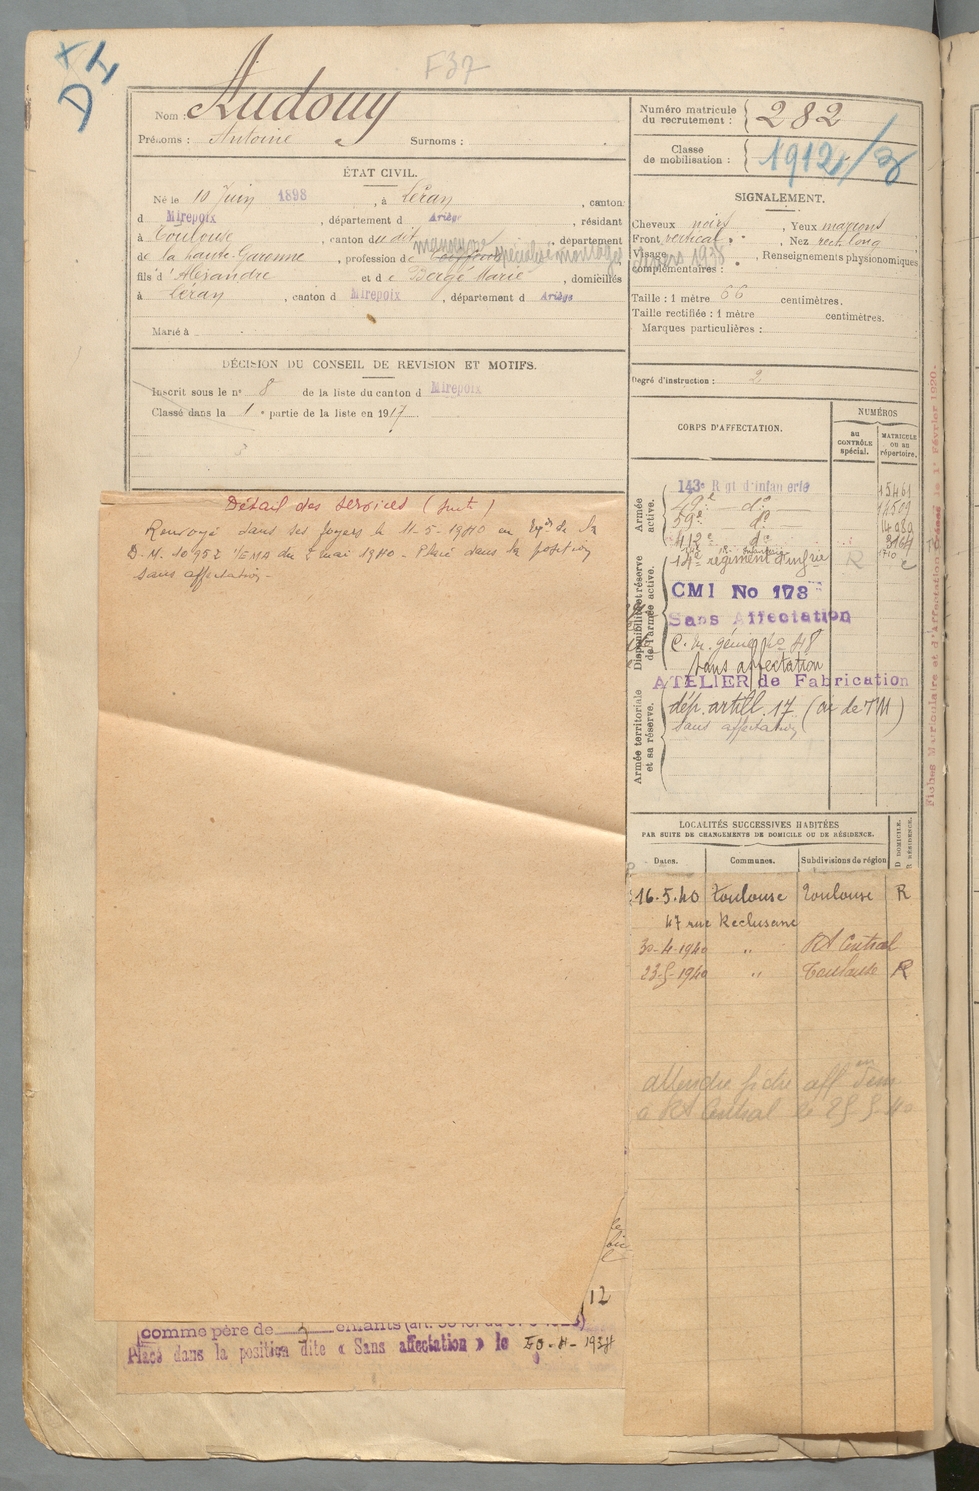 F37
DI
Nom : Audouy
Prénoms : Antoine Surnoms :
Numéro matricule du recrutement : 282
Classe de mobilisation : 1912
ÉTAT CIVIL.
Né le 10 Juin 1898, à Léran, canton
d Mirepoix, département d Ariège, résidant
à Toulouse, canton dudit, département
de la haute-Garonne, profession de manœuvre spécialisé montage
fils d'Alexandre et de Bergé Marie, domiciliés
à Léran, canton d Mirepoix, département d Ariège
Marié à
SIGNALEMENT.
Cheveux noirs, Yeux marrons
Front vertical, Nez rect. long
Visage, Renseignements physionomiques
complémentaires :
Taille : 1 mètre 66 centimètres.
Taille rectifiée : 1 mètre centimètres.
Marques particulières :
Degré d'instruction : 2
DÉCISION DU CONSEIL DE REVISION ET MOTIFS.
Inscrit sous le n° 8 de la liste du canton d Mirepoix
Classé dans la 1e partie de la liste en 1917
3
CORPS D'AFFECTATION.
NUMÉROS
au CONTRÔLE spécial.
MATRICULE ou au répertoire.
Armée active.
143e Rgt d'Infanterie 15461
do 14509
59e do
412e do 3164
Disponibilité et réserve de l'armée active.
14e régiment d'infrie R
CMI No 178
Sans Affectation
C. M. génie No 48
Sans affectation
ATELIER de Fabrication
Armée territoriale et sa réserve.
dép. artill. 17 (
sans affectation
Fiches Matriculaire et d'Affectation Créées le 1er Février 1920.
Détail des services (suite)
Renvoyé dans ses foyers le 11-5-1940 en de la
D.M. 10952 1/EMA du 7 mai 1940 - Placé dans la position
sans affectation -
LOCALITÉS SUCCESSIVES HABITÉES
PAR SUITE DE CHANGEMENTS DE DOMICILE OU DE RÉSIDENCE.
Dates. Communes. Subdivisions de région D DOMICILE. R RÉSIDENCE.
16.5.40 Toulouse Toulouse R
47 rue Reclusane
30-4-1940 " Central
23-5-1940 " Toulouse R
attendre fiche aff
à Central le 25 5 40
12
comme père de 2 enfants (art.
Placé dans la position dite « Sans affectation » le